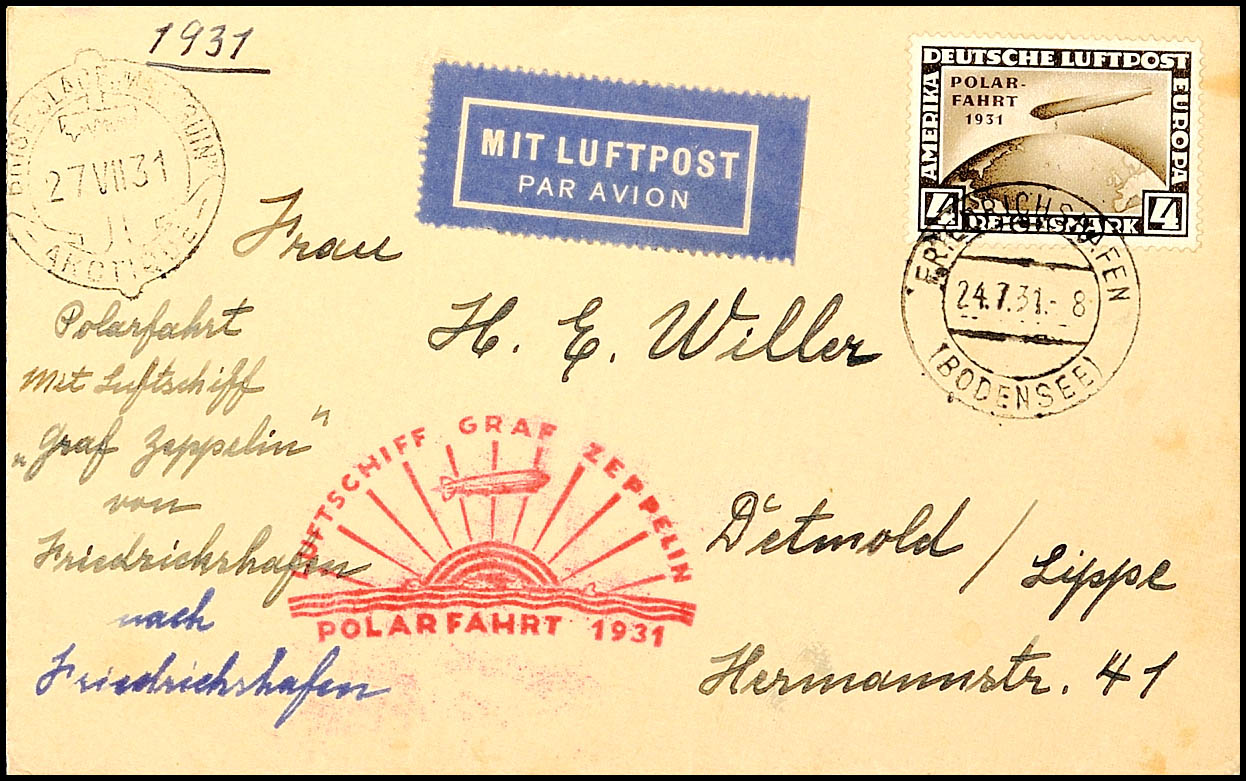 1931
27 VII 31
MIT LUFTPOST
PAR AVION
DEUTSCHE LUFTPOST
AMERIKA
EUROPA
POLAR-
FAHRT
1931
4 REICHSMARK 4
FRIEDRICHSHAFEN
24.7.31.- 8
(BODENSEE)
Frau
H. E. Willer
Detmold / Lippe
Hermannstr. 41
Polarfahrt
Mit Luftschiff
„Graf Zeppelin"
von
Friedrichshafen
nach
Friedrichshafen
LUFTSCHIFF GRAF ZEPPELIN
POLARFAHRT 1931